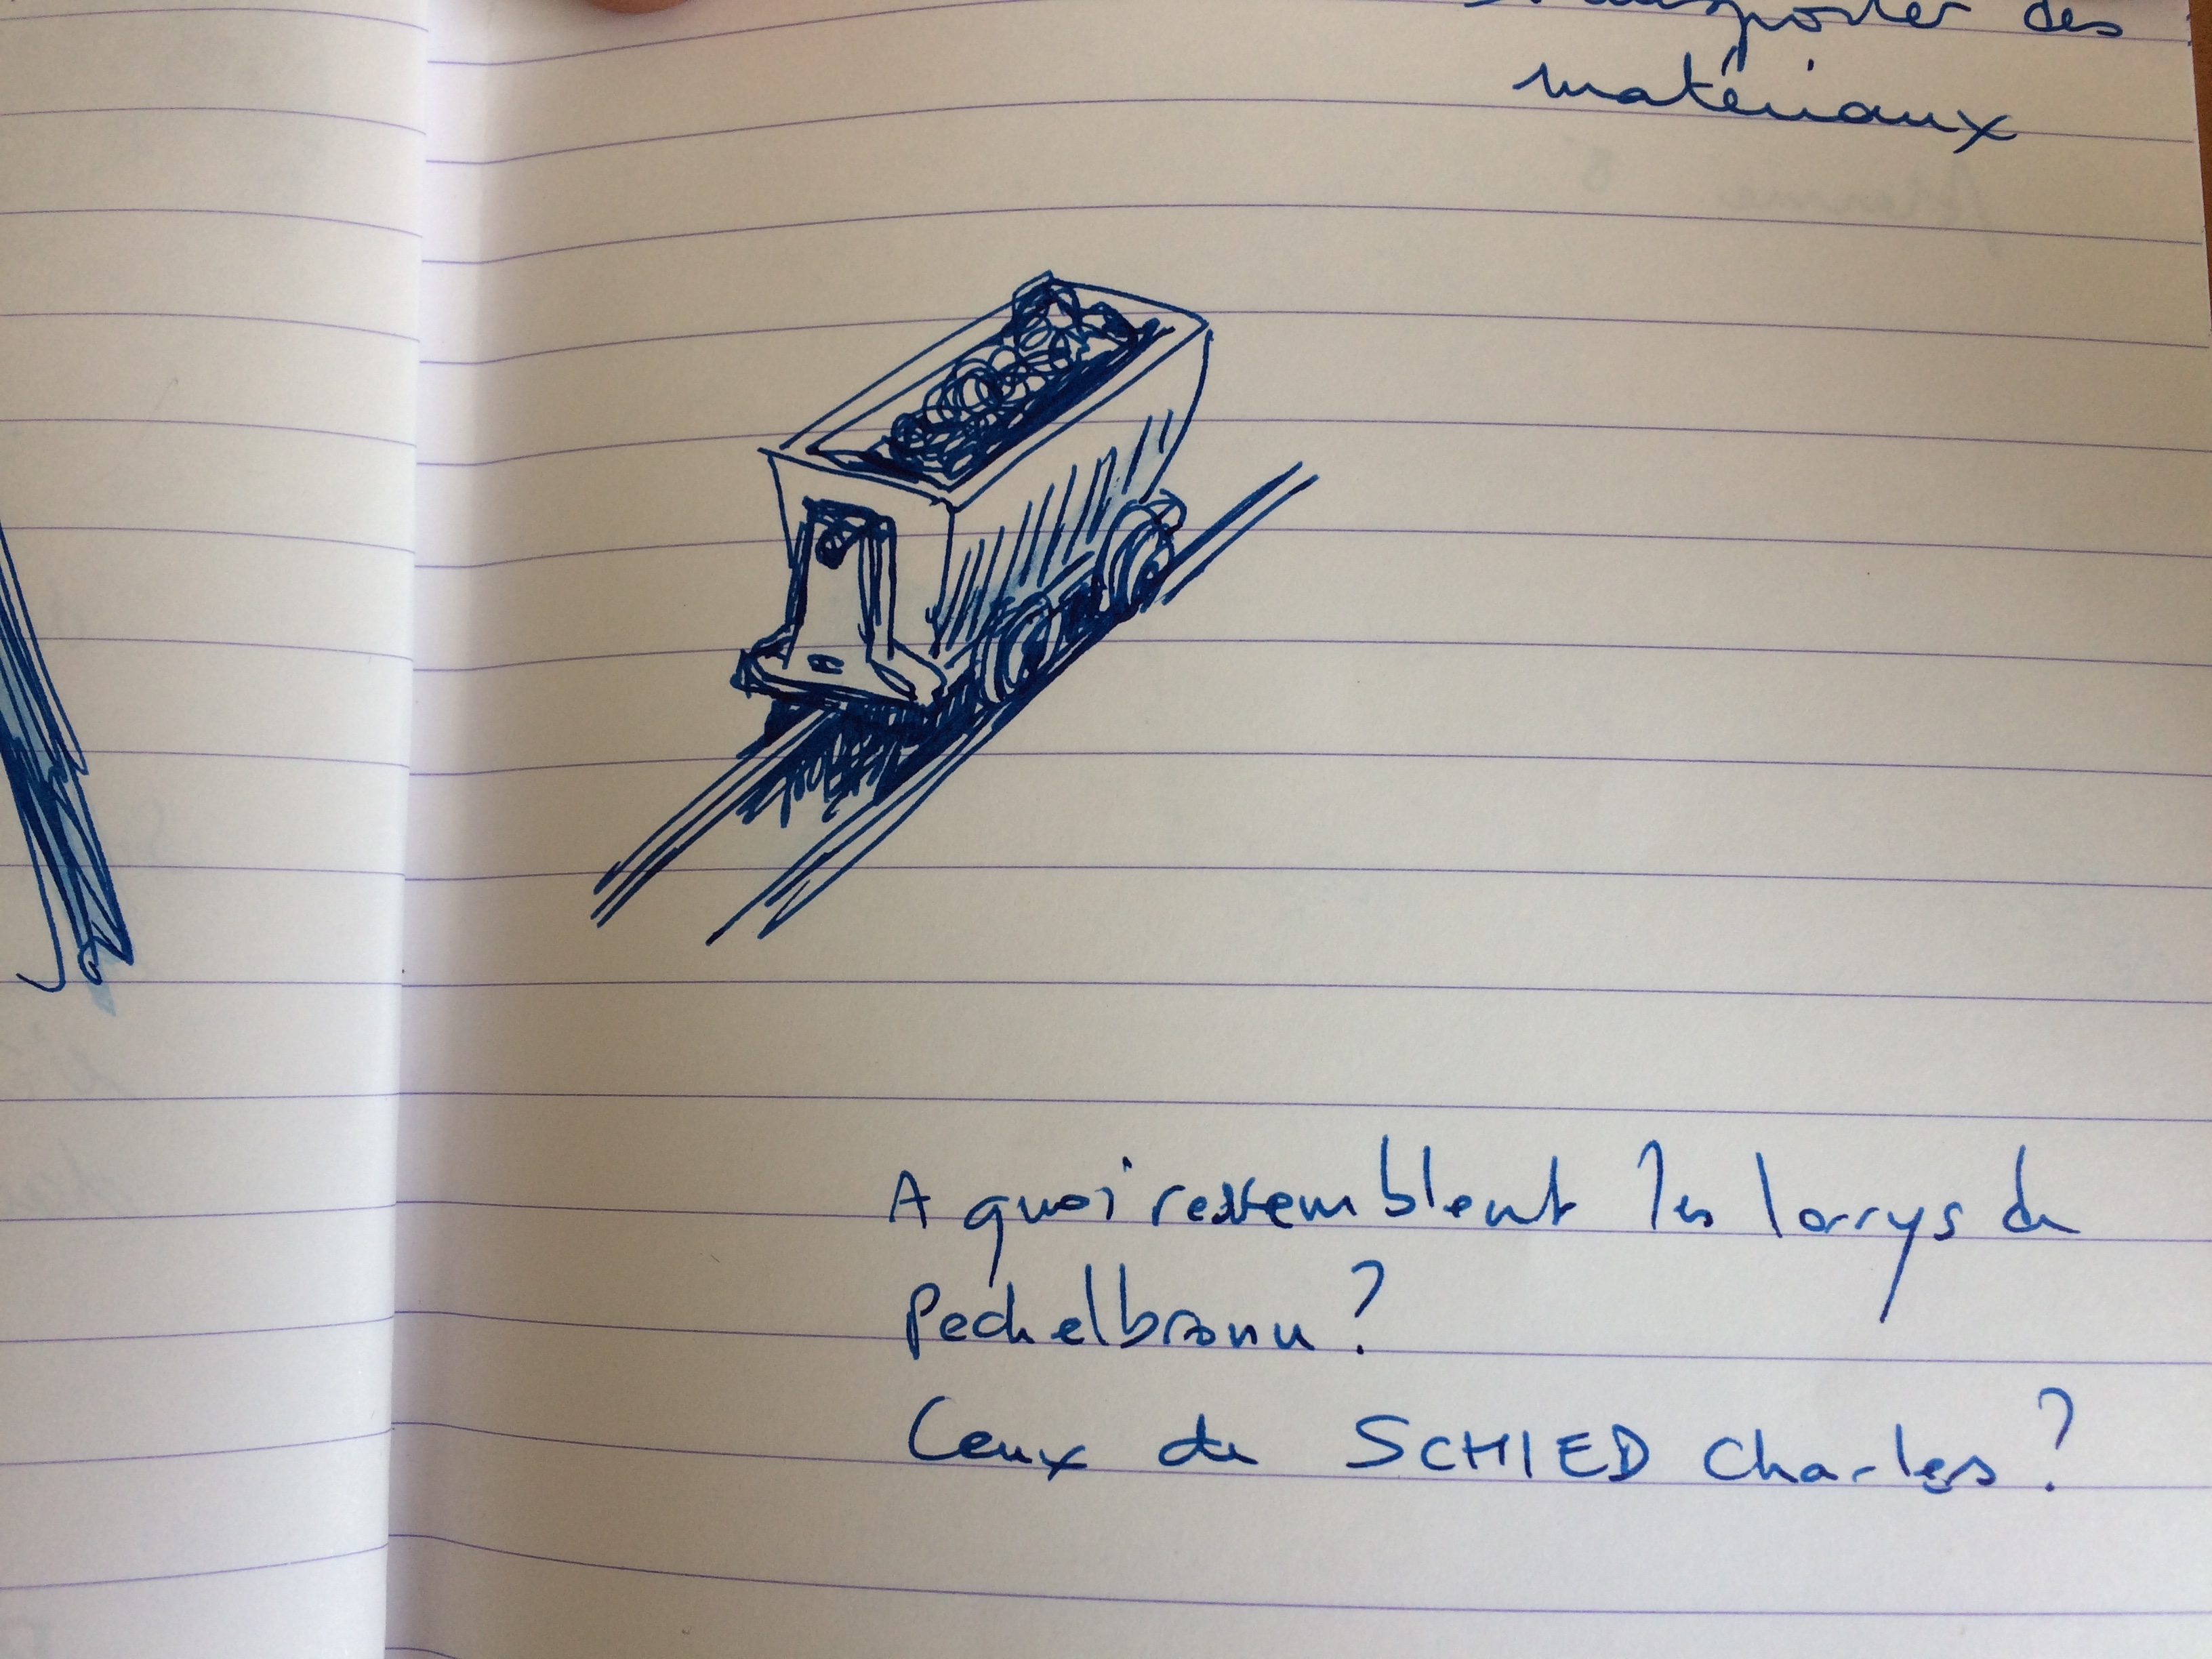 transporter des
matériaux
A quoi ressemblent les lorrys de
Pechelbronn ?
Ceux de SCHIED Charles ?